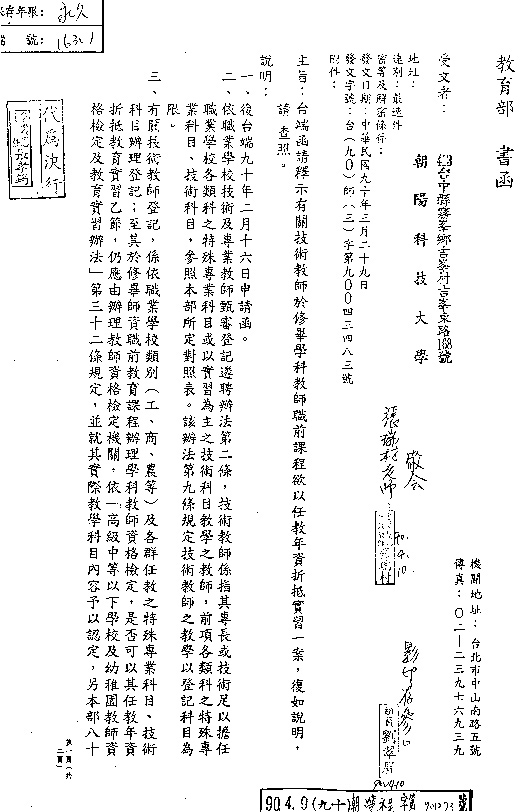 保存年限：永久
號：
教育部　書函
機關地址：台北市中山南路五號
傳真：０二－二三九七六九三九
受文者：
413台中縣霧峯鄉吉峯村吉峯東路168號
朝陽科技大學
地址：
速別：最速件
密等及解密條件：
發文日期：中華民國九十年三月二十九日
發文字號：台（九０）師（三）字第九００四三四八三號
附件：
主旨：台端函請釋示有關技術教師於修畢學科教師職前課程欲以任教年資折抵實習一案，復如說明，
請　查照。
說明：
一、復台端九十年二月十六日申請函。
二、依職業學校技術及專業教師甄審登記遴聘辦法第二條，技術教師係指其專長或技術足以擔任
職業學校各類科之特殊專業科目或以實習為主之技術科目教學之教師，前項各類科之特殊專
業科目、技術科目，參照本部所定對照表。該辦法第九條規定技術教師之教學以登記科目為
限。
三、有關技術教師登記，係依職業學校類別（工、商、農等）及各群任教之特殊專業科目、技術
科目辦理登記；至其於修畢師資職前教育課程辦理學科教師資格檢定，是否可以其任教年資
折抵教育實習乙節，仍應由辦理教師資格檢定機關，依「高級中等以下學校及幼稚園教師資
格檢定及教育實習辦法」第三十二條規定，並就其實際教學科目內容予以認定，另本部八十
代為決行
敬會
張瑞村老師
90.4.10.
第一頁（共
二頁）
90.4.9（九十）朝